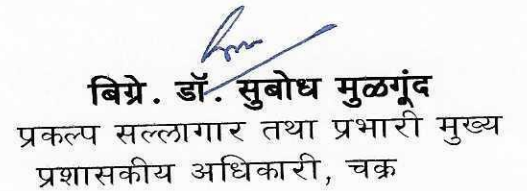 बिग्रे. डॉ. सुबोध मुळगूंद
प्रकल्प सल्लागार तथा प्रभारी मुख्य
प्रशासकीय अधिकारी, चक्र